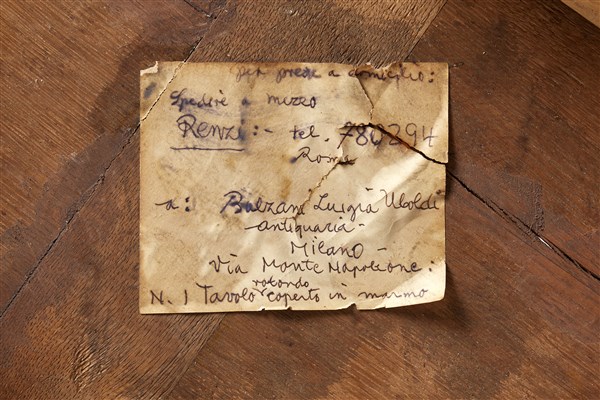 per prese a domicilio:
Spedire a mezzo
Renzi:- tel. 780294
Roma
a: Balzani Luigia Uboldi
-antiquaria-
Milano-
Via Monte Napoleone:
rotondo
N. 1 Tavolo coperto in marmo